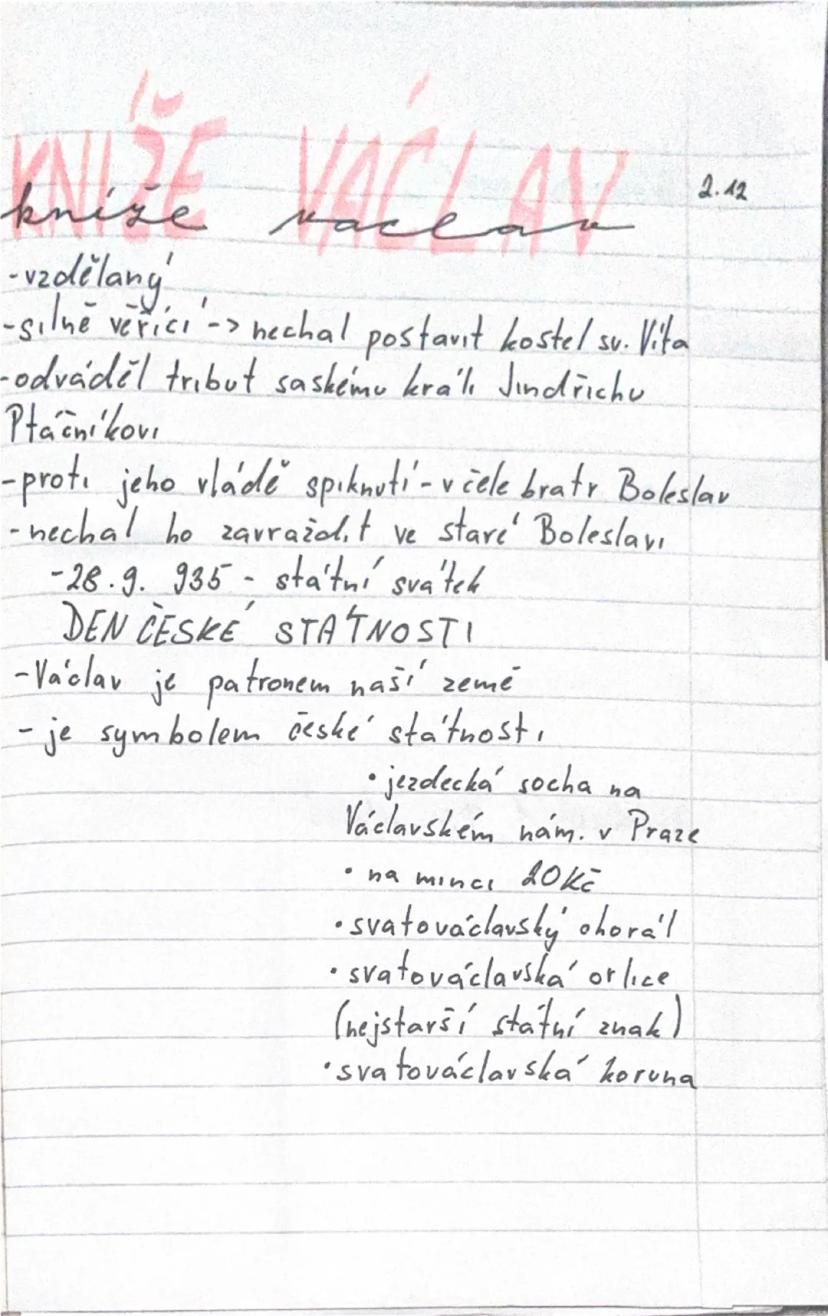 KNÍŽE VÁCLAV
2.12
kníže vaclav
-vzdělaný
-silně věřící -> nechal postavit kostel sv. Víta
-odváděl tribut saskému králi Jindřichu
Ptáčníkovi
-proti jeho vládě spiknutí - v čele bratr Boleslav
-nechal ho zavraždit ve staré Boleslavi
-28.9. 935 - státní svátek
DEN ČESKÉ STÁTNOSTI
-Václav je patronem naší země
- je symbolem české státnosti
• jezdecká socha na
Václavském nám. v Praze
• na minci 20Kč
• svatováclavský chorál
• svatováclavská orlice
(nejstarší státní znak)
• svatováclavská koruna